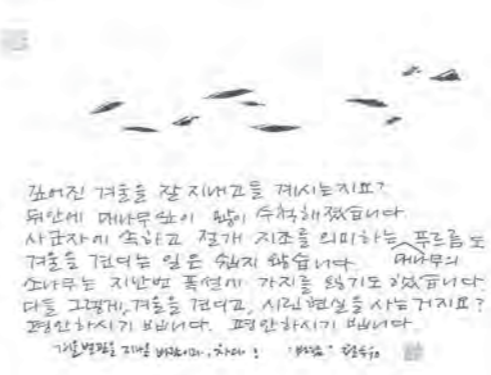 깊어진 겨울을 잘 지내고들 계시는지요?
뒤안에 대나무 잎이 많이 수척해졌습니다.
사군자에 속하고 절개 지조를 의미하는 대나무의 푸르름도
겨울을 견디는 일은 쉽지 않습니다.
소나무는 지난번 폭설에 가지를 잃기도 했습니다
다들 그렇게, 겨울을 견디고, 시린 현실을 사는 거지요?
평안하시기 빕니다. 평안하시기 빕니다.
겨울 벌판을 지날 바람이, 차다!